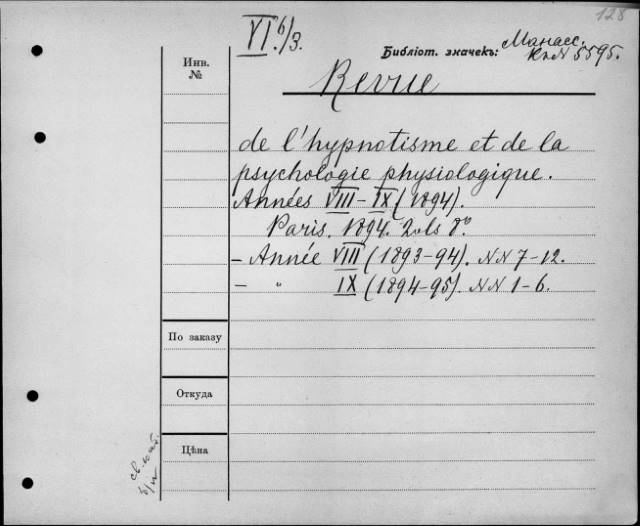 128
VI 6/3.
Библіот. значекъ: Манасс.
КъN 5595.
Инв.
№
Revue
de l'hypnotisme et de la
psychologie physiologique.
Années VIII-IX (1894).
Paris. 1894. 2 vls 8°.
- Année VIII (1893-94). NN 7-12.
- " IX (1894-95). NN 1-6.
По заказу
Откуда
Цѣна